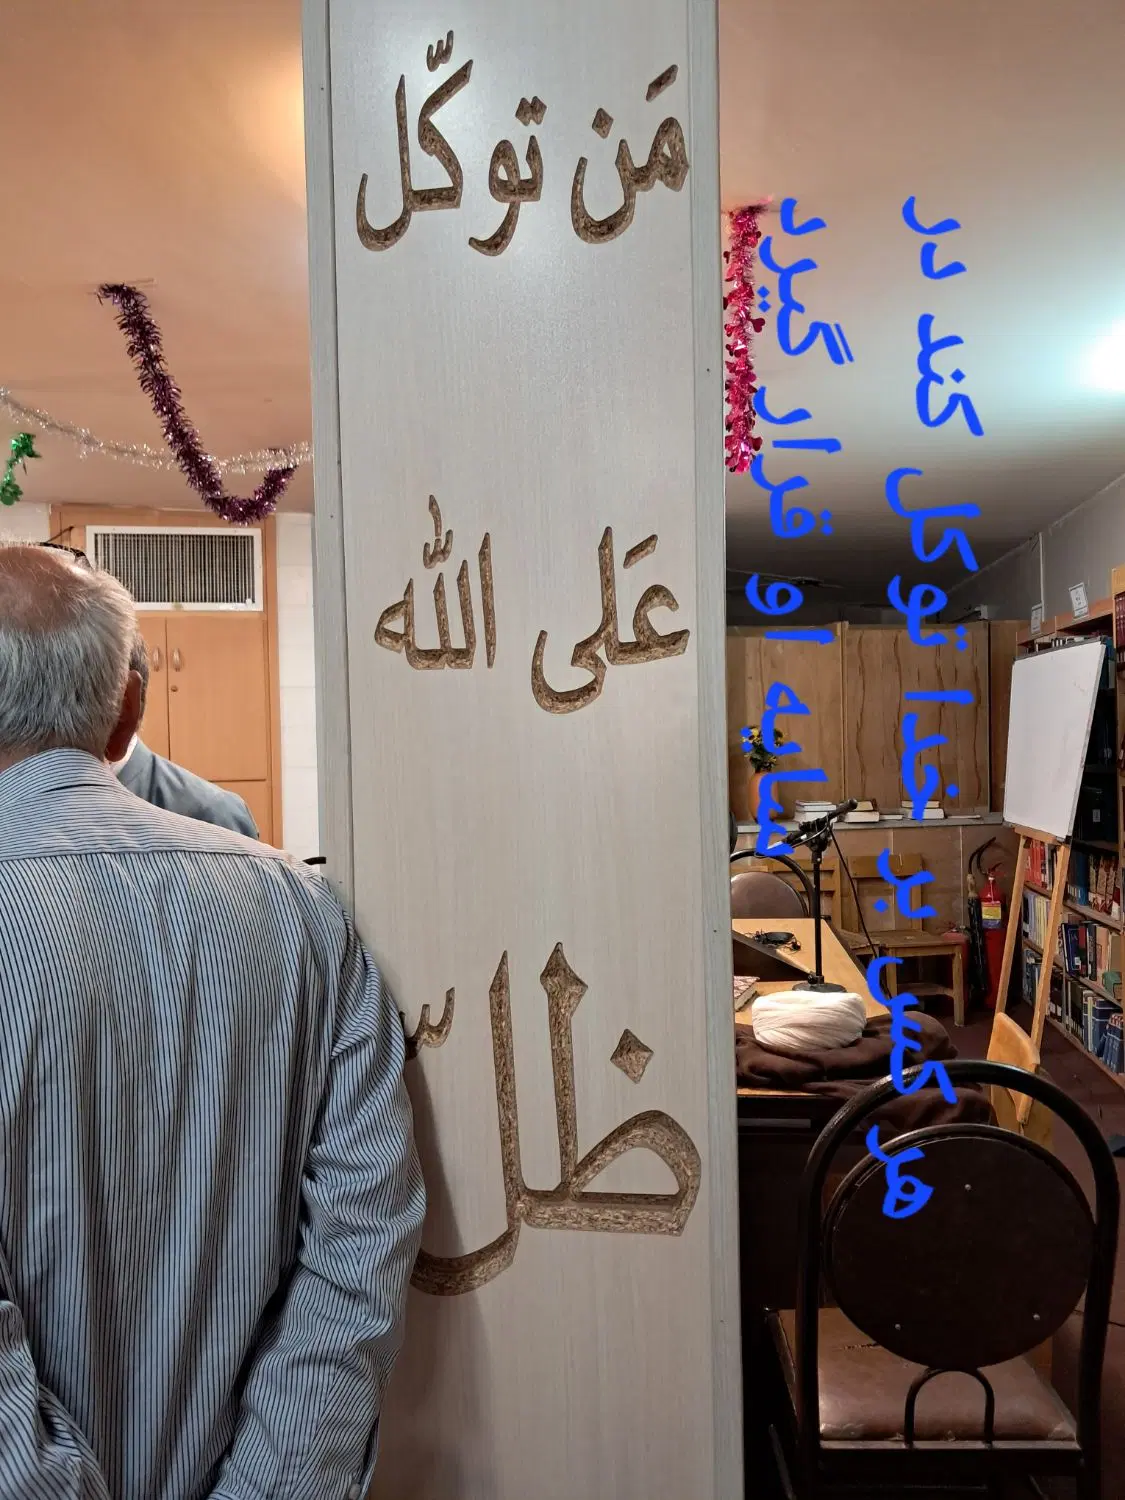 مَن توکّل
عَلی اللّٰه
ظلّ
هر کس بر خدا توکل کند در
سایه او قرار گیرد